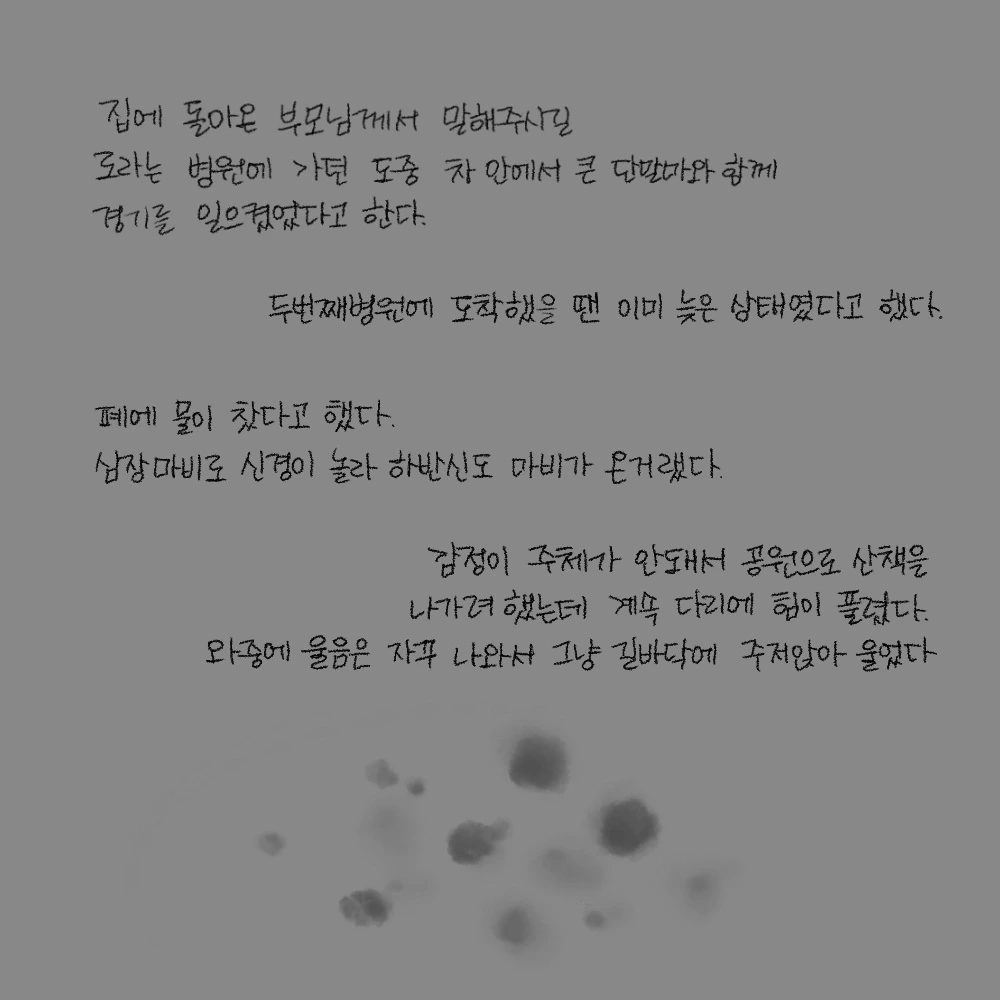 집에 돌아온 부모님께서 말해주시길
도라는 병원에 가던 도중 차 안에서 큰 단말마와 함께
경기를 일으켰었다고 한다.
두번째병원에 도착했을 땐 이미 늦은 상태였다고 했다.
폐에 물이 찼다고 했다.
심장마비로 신경이 놀라 하반신도 마비가 온거랬다.
감정이 주체가 안돼서 공원으로 산책을
나가려 했는데 계속 다리에 힘이 풀렸다.
와중에 울음은 자꾸 나와서 그냥 길바닥에 주저앉아 울었다